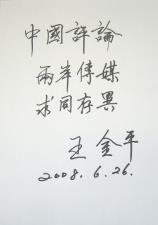 中國評論
兩岸傳媒
求同存異
王金平
2008.6.26.